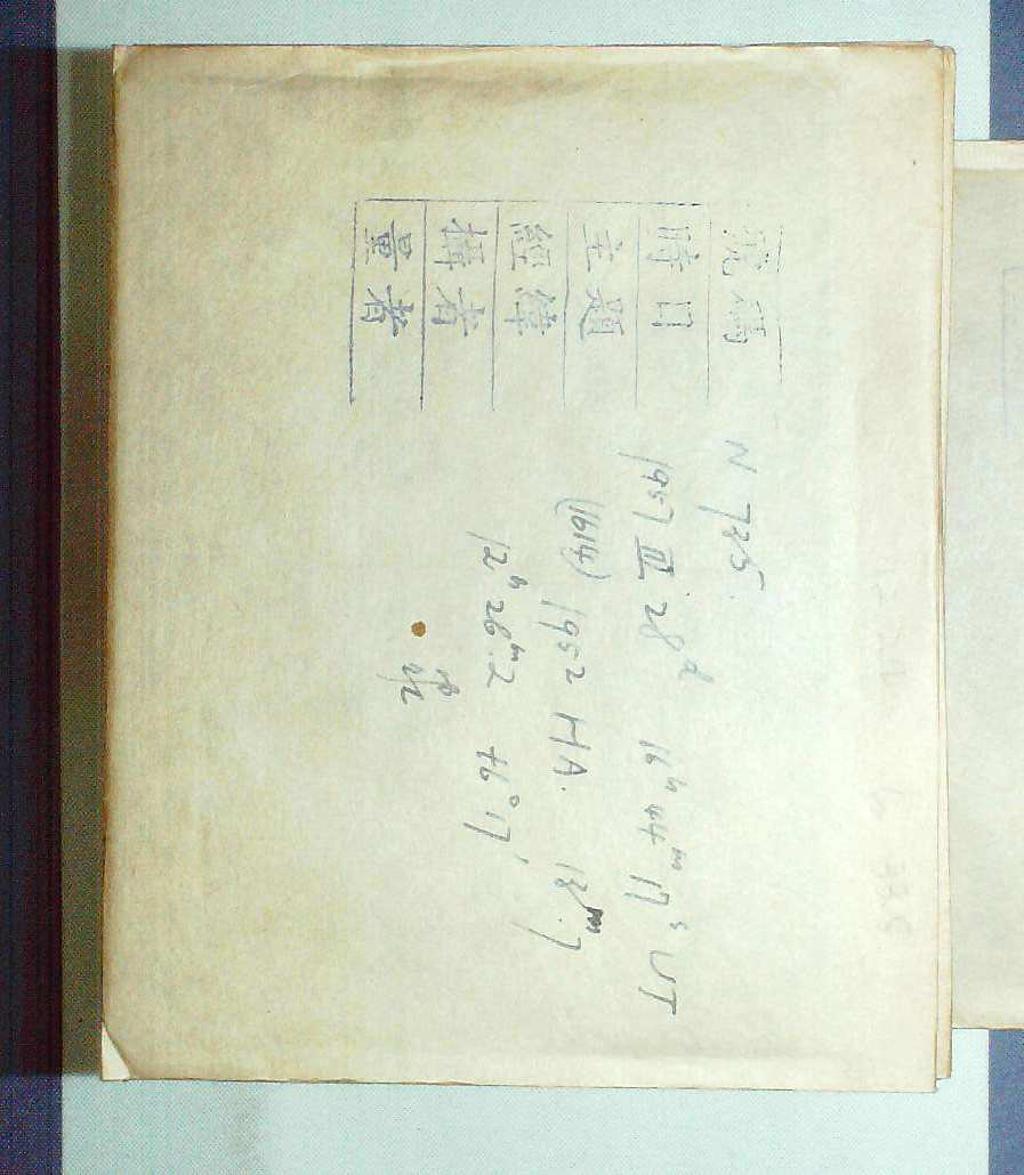 號碼 N 725.
時日 1957 III 28ᵈ 16ʰ 44ᵐ 17ˢ UT
主題 (1614) 1952 HA. 13ᵐ.7
經緯 12ʰ 28ᵐ.2 +6° 17′
攝者
量者